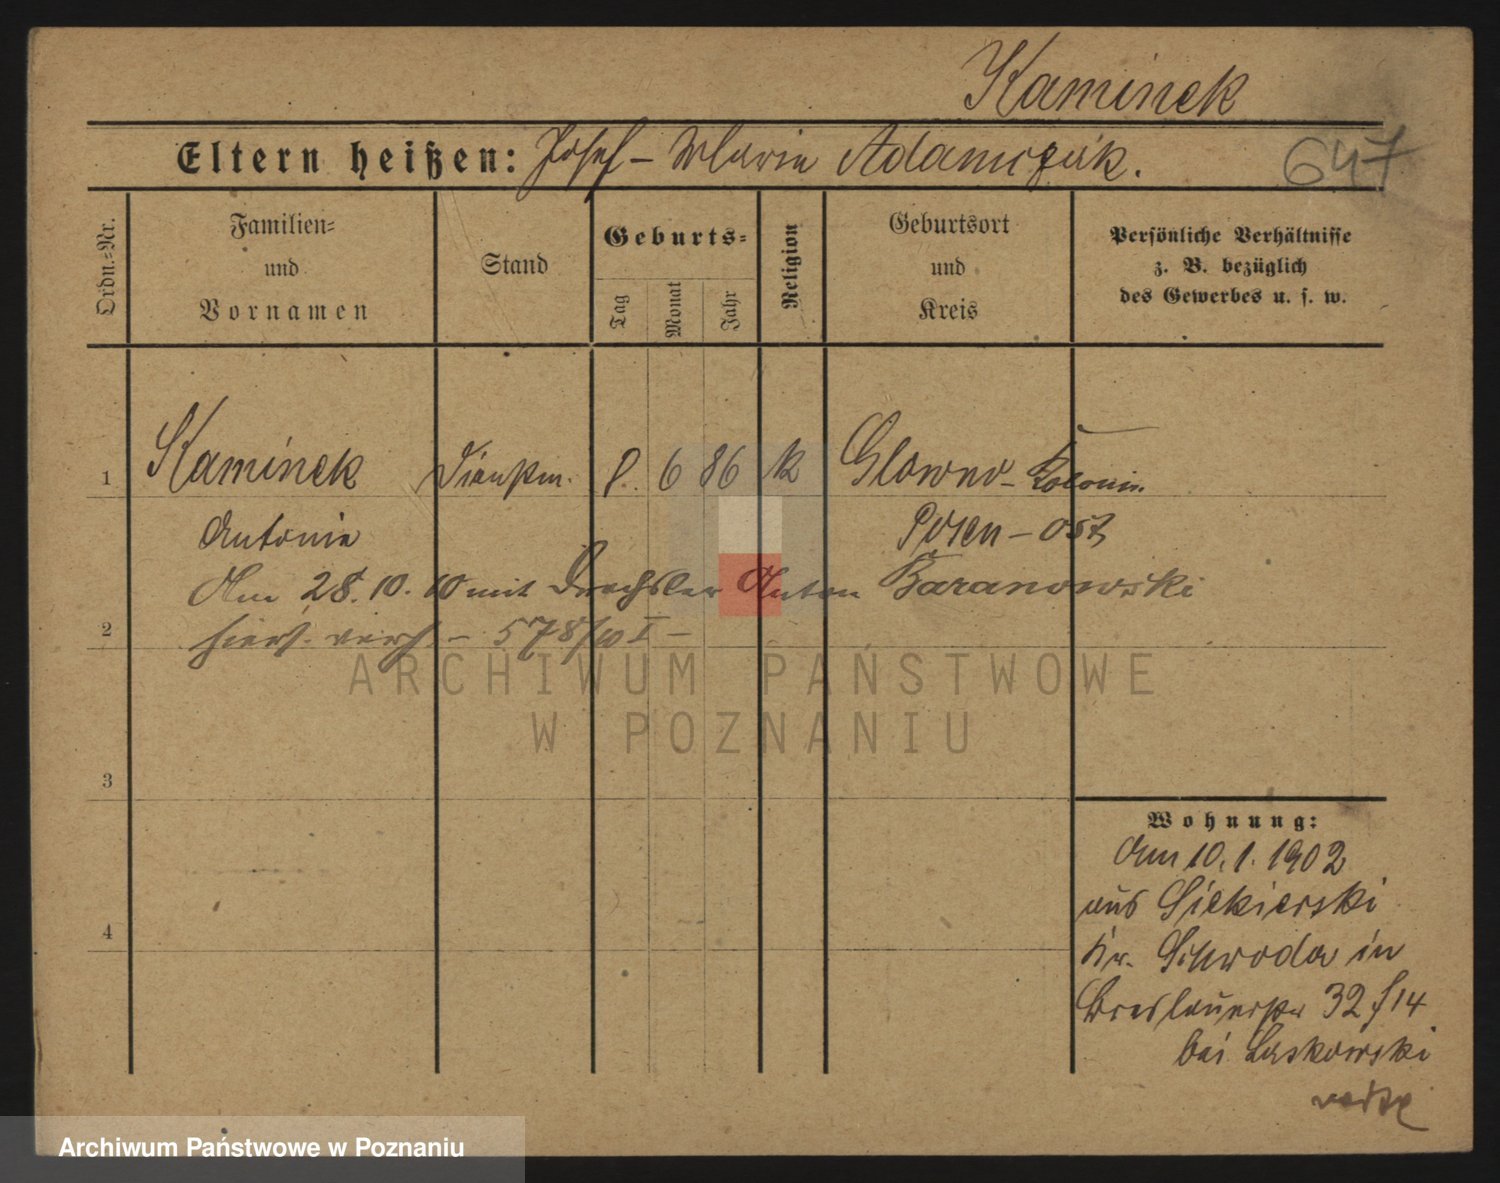 Kaminek
Eltern heißen: Josef - Maria Adamczak.
647
Ordn.-Nr.
Familien- und Vornamen
Stand
Geburts-
Tag
Monat
Jahr
Religion
Geburtsort und Kreis
Persönliche Verhältnisse
z. B. bezüglich
des Gewerbes u. s. w.
1 Kaminek Dienstm. 8. 6 86 k Glowno - Kolonie
Antonie Posen - Ost
Am 28. 10. 10 mit Drechsler Anton Baranowski
2 hiers. verh. - 578/10 I -
ARCHIWUM PAŃSTWOWE
W POZNANIU
3
4
Wohnung:
Am 10. 1. 1902
aus Siekierski
Kr. Schroda in
Breslauerstr 32 14
bei Laskowski
Archiwum Państwowe w Poznaniu